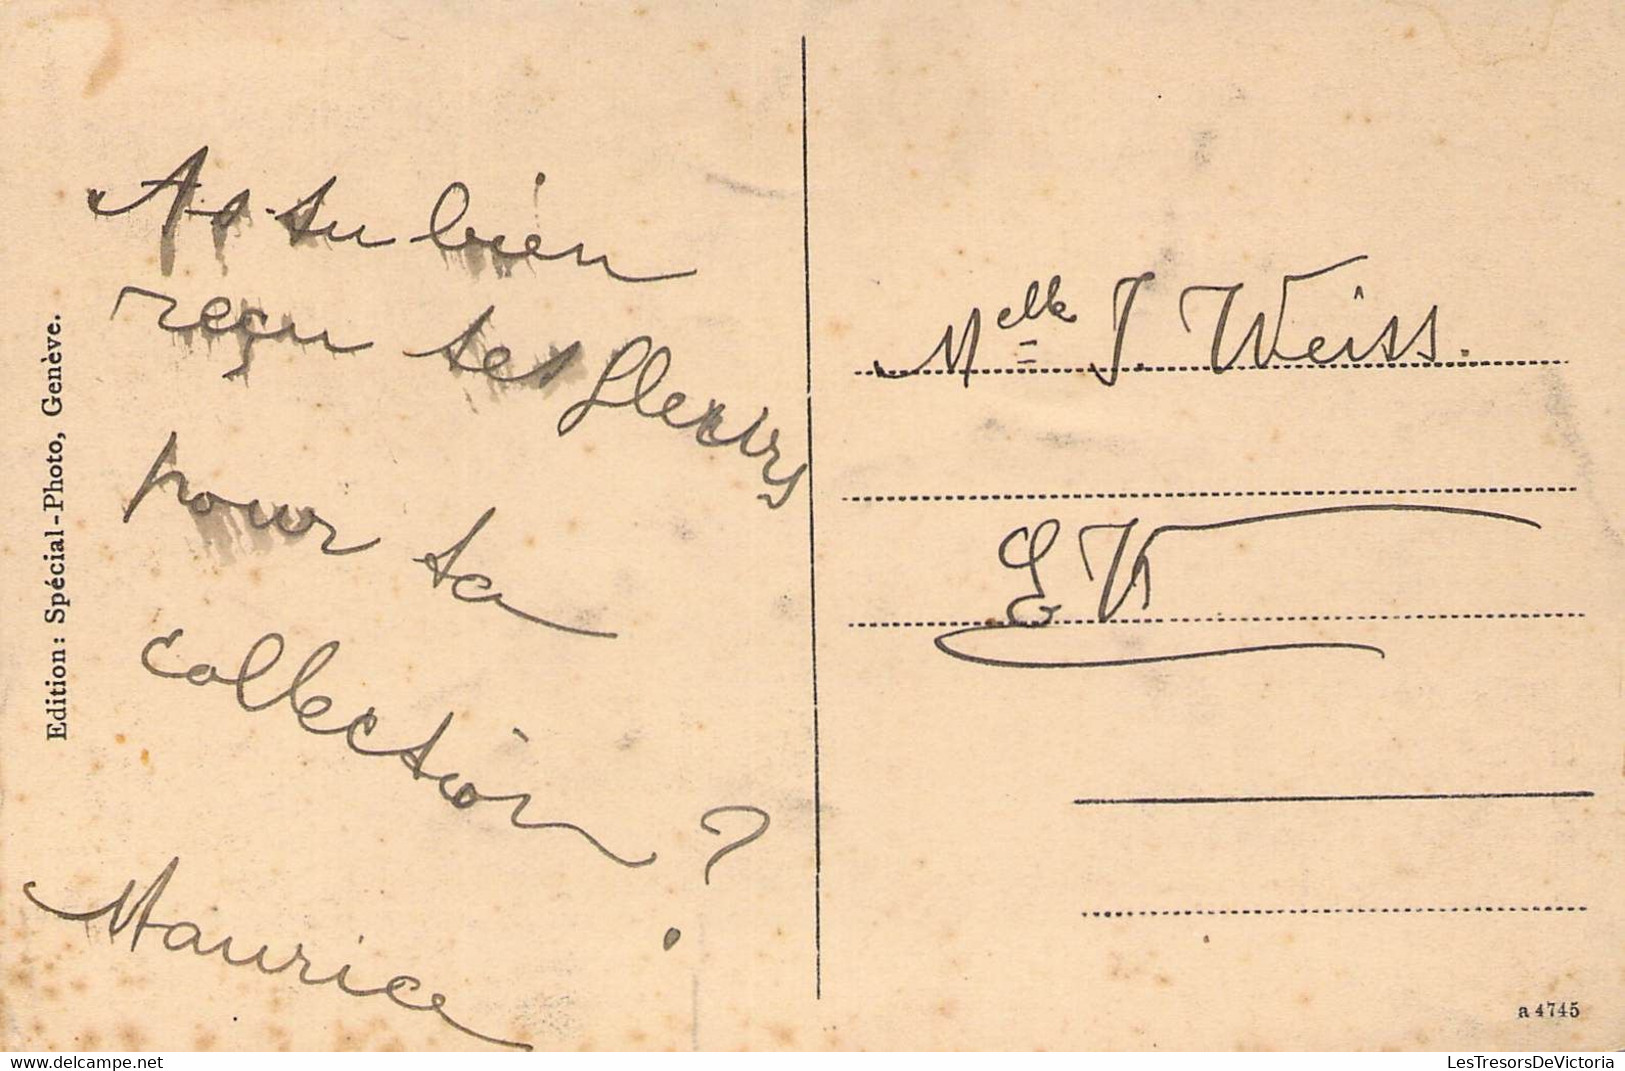 Edition: Spécial-Photo, Genève.
As-tu bien
reçu tes fleurs
pour ta
collection ?
Maurice
Melle J. Weiss.
E V
a 4745
LesTresorsDeVictoria